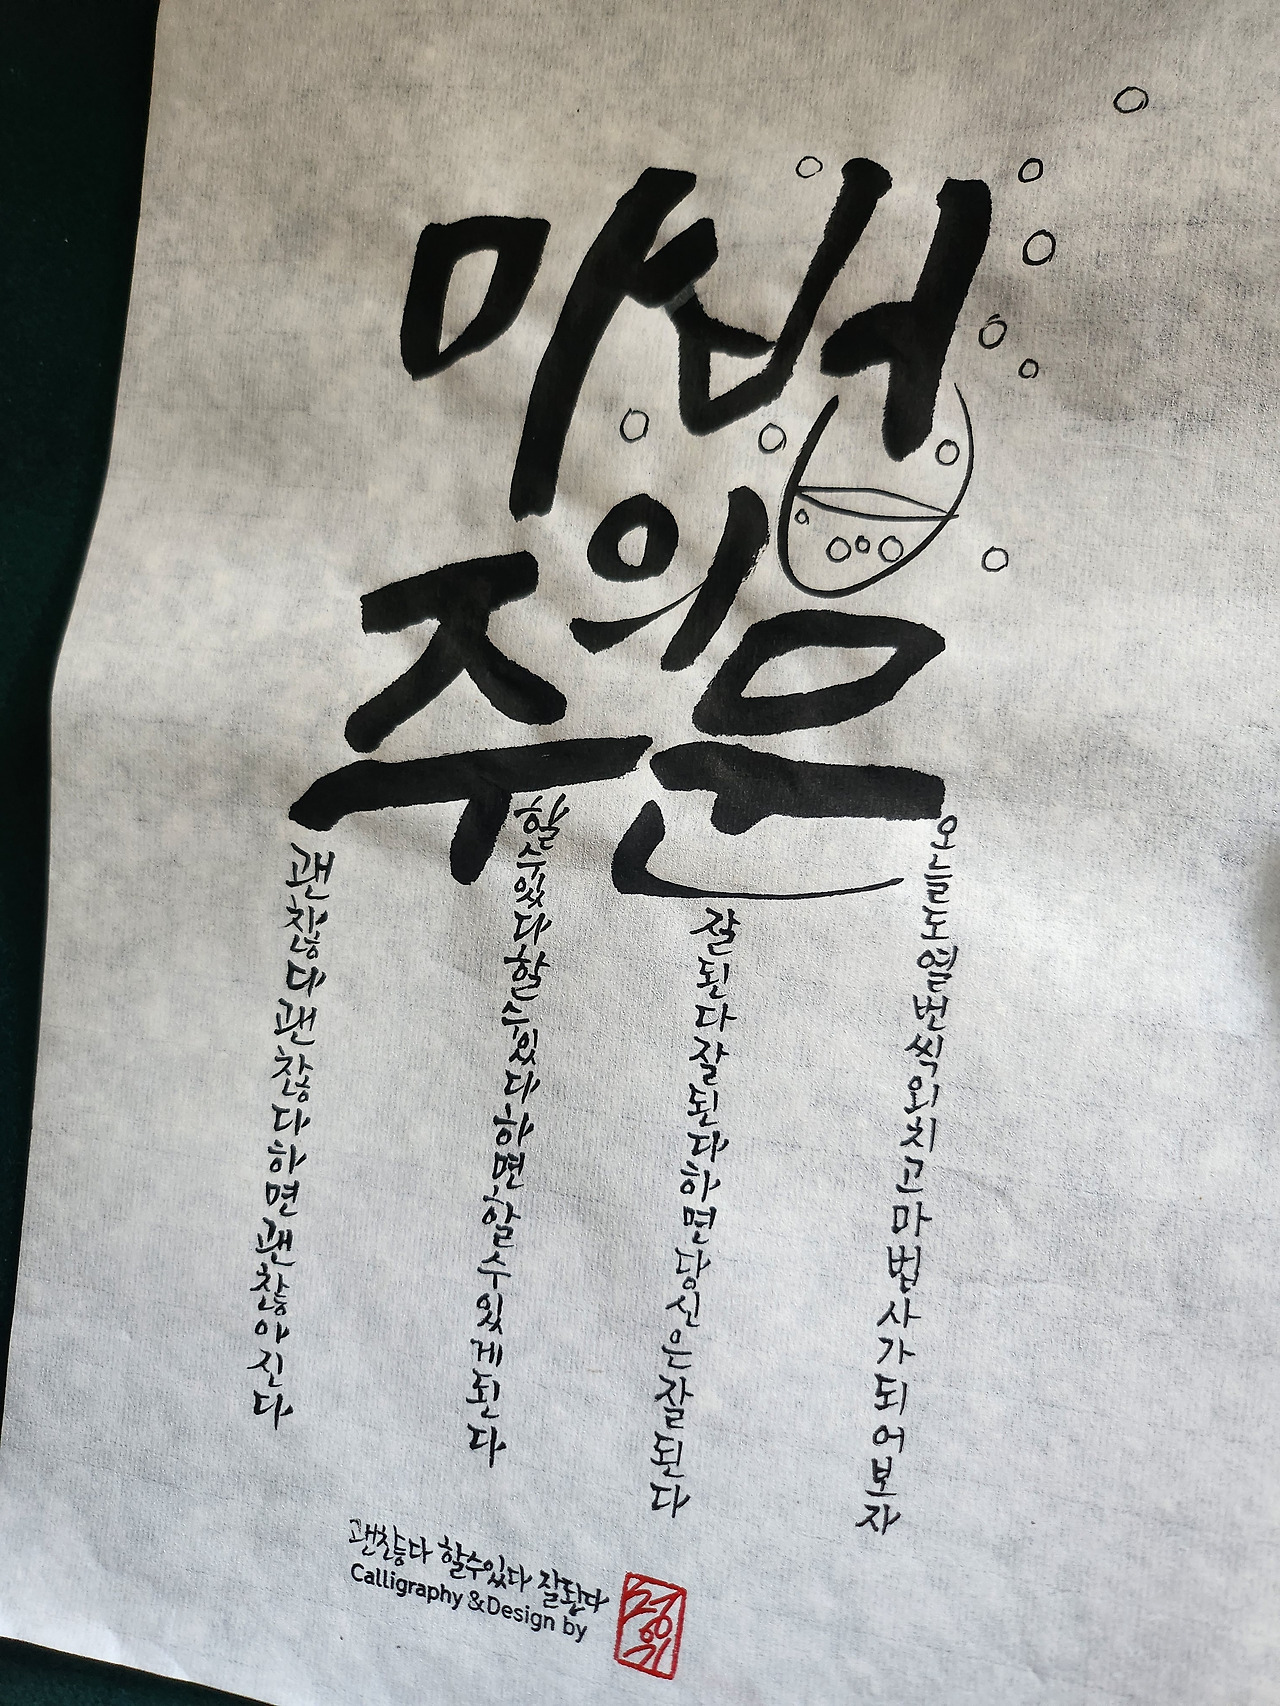 마법
의
주문
괜찮다괜찮다하면괜찮아진다
할수있다할수있다하면할수있게된다
잘된다잘된다하면당신은잘된다
오늘도열번씩외치고마법사가되어보자
괜찮다 할수있다 잘된다
Calligraphy &Design by